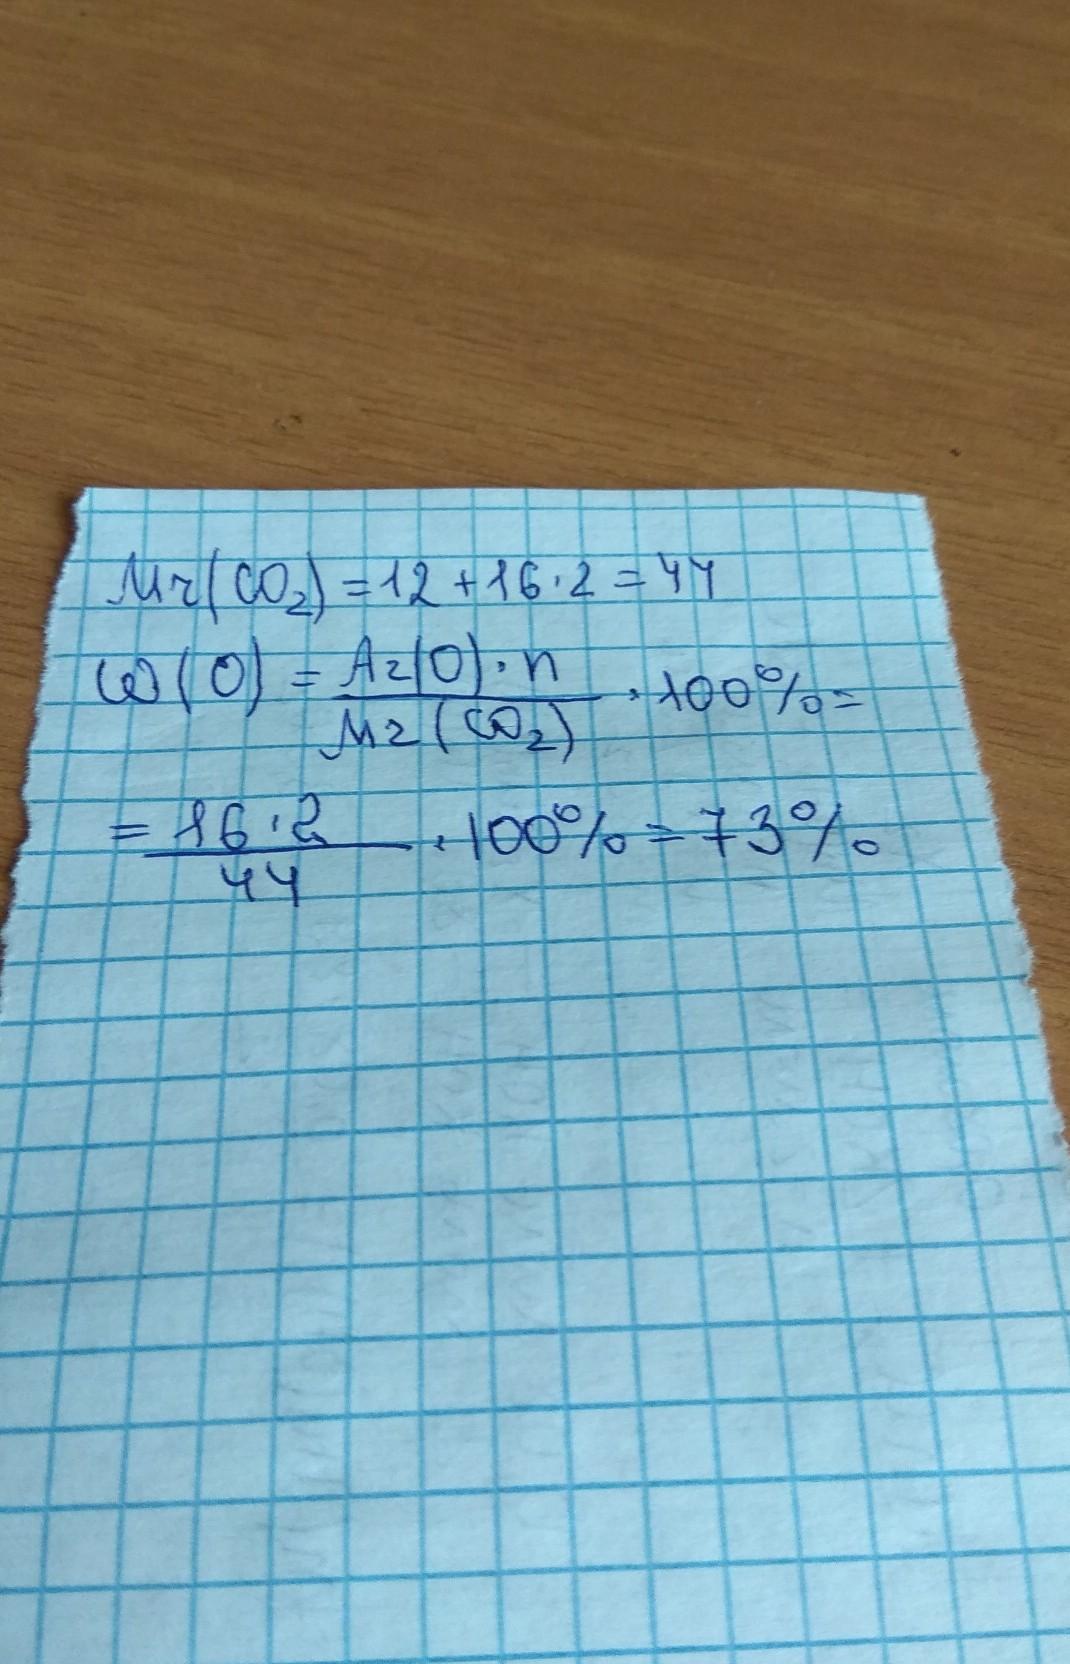 Mr(CO₂) = 12 + 16 · 2 = 44
ω(O) = Ar(O) · n / Mr(CO₂) · 100% =
= 16 · 2 / 44 · 100% = 73%